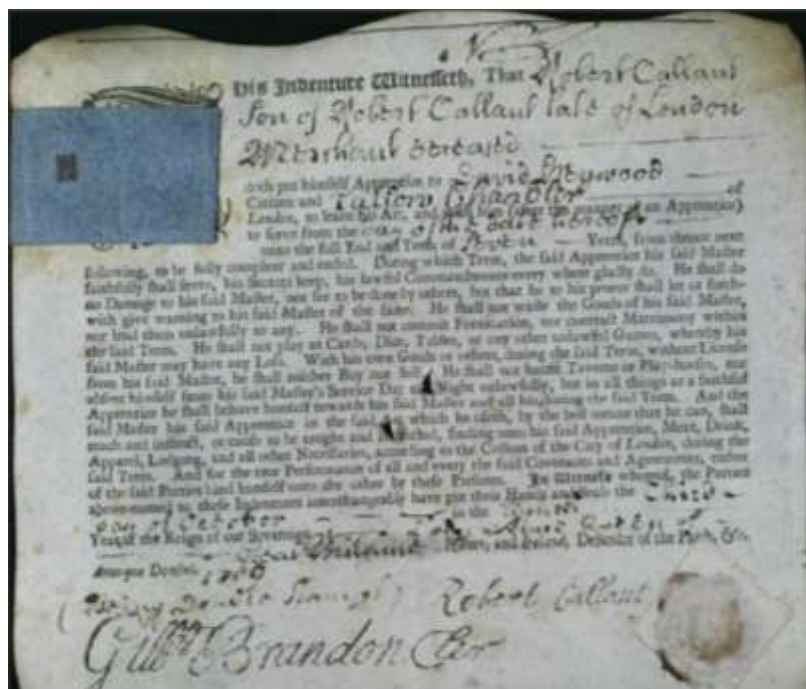 His Indenture Witnesseth, That Robert Callant
Son of Robert Callant late of London
Merchant deceased
doth put himself Apprentice to David Heywood
Citizen and Tallow Chandler of
London, to learn his Art, and with him (after the manner of an Apprentice)
to serve from the day of the date hereof
unto the full End and Term of Seven Years, from thence next
following, to be fully compleat and ended. During which Term, the said Apprentice his said Master
faithfully shall serve, his Secrets keep, his lawful Commandments every where gladly do. He shall do
no Damage to his said Master, nor see to be done by others, but that he to his power shall let or forth-
with give warning to his said Master of the same. He shall not waste the Goods of his said Master,
nor lend them unlawfully to any. He shall not commit Fornication, nor contract Matrimony within
the said Term. He shall not play at Cards, Dice, Tables, or any other unlawful Games, whereby his
said Master may have any Loss. With his own Goods or others, during the said Term, without Licence
from his said Master, he shall neither Buy nor Sell. He shall not haunt Taverns or Play-houses, nor
absent himself from his said Master's Service Day Night unlawfully, but in all things as a faithful
Apprentice he shall behave himself towards his said Master and all his during the said Term. And the
said Master his said Apprentice in the same which he useth, by the best means that he can, shall
teach and instruct, or cause to be taught and finding unto his said Apprentice, Meat, Drink,
Apparel, Lodging, and all other Necessaries, according to the Custom of the City of London, during the
said Term. And for the true Performance of all and every the said Covenants and Agreements, either
of the said Parties bind himself unto the other by these Presents. In Witness whereof, the Parties
above-named to these Indentures interchangeably have put their Hands and Seals the Third
day of October in the
Year of the Reign of our Sovereign Anne Queen of
Great Britaine and Ireland, Defender of the Faith, &c.
Annoque Domini
Robert Callant
Brandon